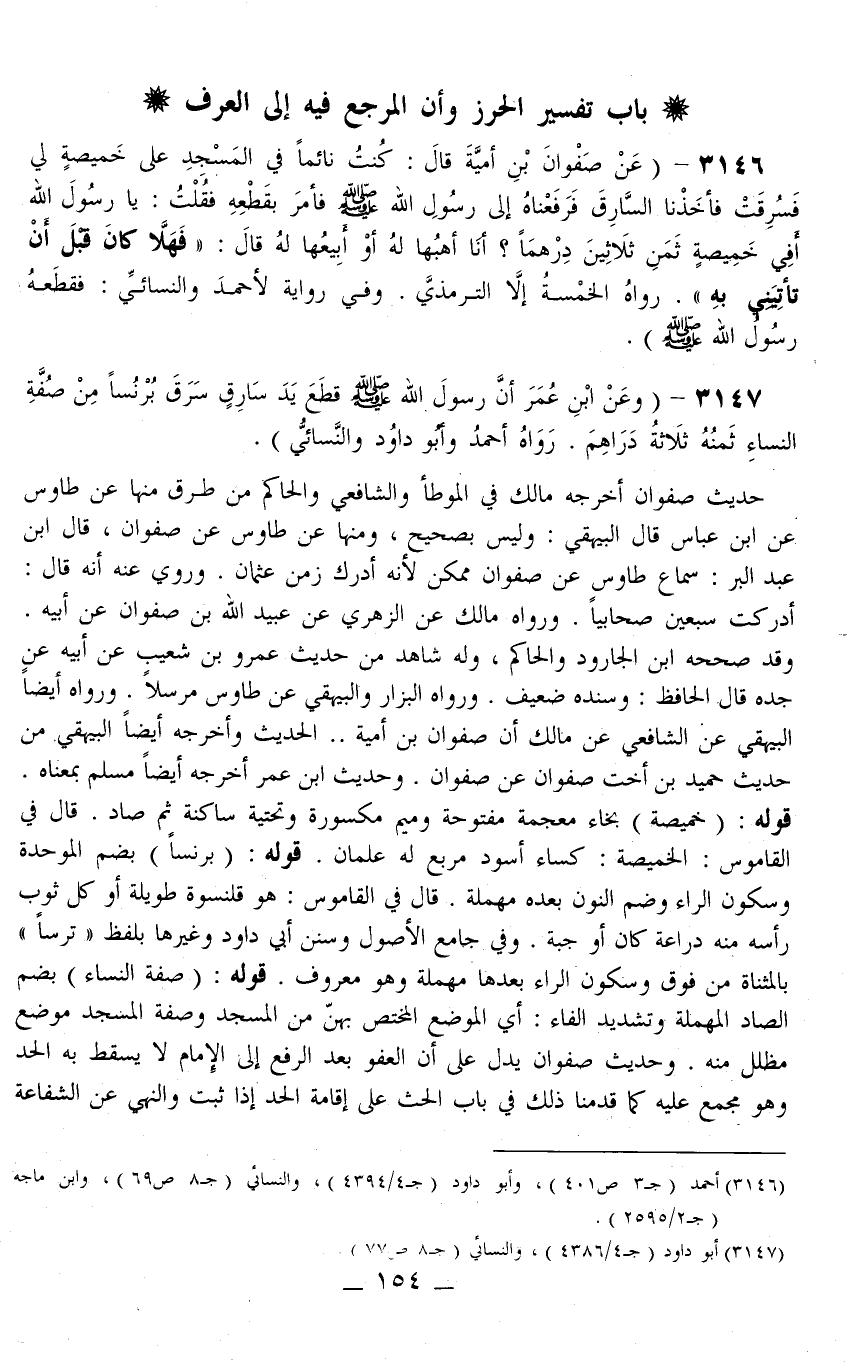 ❋ باب تفسير الحرز وأن المرجع فيه إلى العرف ❋
٣١٤٦ - ( عَنْ صَفْوانَ بْنِ أميَّةَ قالَ : كُنتُ نائماً في المَسْجِدِ على خَميصةٍ لي
فَسُرِقَتْ فأخَذْنا السَّارِقَ فَرَفَعْناهُ إلى رسُولِ الله ﷺ فأمرَ بقَطْعِهِ فقُلْتُ : يا رسُولَ الله
أَفِي خَمِيصةٍ ثَمَنِ ثلَاثِينَ دِرْهمَاً ؟ أنَا أهبُها لهُ أوْ أَبِيعُها لهُ قالَ : « فَهَلَّا كانَ قَبْلَ أَنْ
تأتِيَنِي بهِ » . رواهُ الخمْسةُ إلَّا الترمذيَّ . وفي رواية لأحمدَ والنسائيِّ : فقطَعهُ
رسُولُ الله ﷺ ) .
٣١٤٧ - ( وعَنْ ابْنِ عُمَرَ أنَّ رسولَ الله ﷺ قطَعَ يَدَ سَارِقٍ سَرَقَ بُرْنُساً مِنْ صُفَّةِ
النساءِ ثَمنُهُ ثلَاثةُ دَرَاهِمَ . رَوَاهُ أحمدُ وأبُو داوُد والنَّسائيُّ ) .
حديث صفوان أخرجه مالك في الموطأ والشافعي والحاكم من طرق منها عن طاوس
عن ابن عباس قال البيهقي : وليس بصحيح ، ومنها عن طاوس عن صفوان ، قال ابن
عبد البر : سماع طاوس عن صفوان ممكن لأنه أدرك زمن عثمان . وروي عنه أنه قال :
أدركت سبعين صحابياً . ورواه مالك عن الزهري عن عبيد الله بن صفوان عن أبيه .
وقد صححه ابن الجارود والحاكم ، وله شاهد من حديث عمرو بن شعيب عن أبيه عن
جده قال الحافظ : وسنده ضعيف . ورواه البزار والبيهقي عن طاوس مرسلاً . ورواه أيضاً
البيهقي عن الشافعي عن مالك أن صفوان بن أمية .. الحديث وأخرجه أيضاً البيهقي من
حديث حميد بن أخت صفوان عن صفوان . وحديث ابن عمر أخرجه أيضاً مسلم بمعناه .
قوله : ( خميصة ) بخاء معجمة مفتوحة وميم مكسورة وتحتية ساكنة ثم صاد . قال في
القاموس : الخميصة : كساء أسود مربع له علمان . قوله : ( برنساً ) بضم الموحدة
وسكون الراء وضم النون بعده مهملة . قال في القاموس : هو قلنسوة طويلة أو كل ثوب
رأسه منه دراعة كان أو جبة . وفي جامع الأصول وسنن أبي داود وغيرها بلفظ « ترساً »
بالمثناة من فوق وسكون الراء بعدها مهملة وهو معروف . قوله : ( صفة النساء ) بضم
الصاد المهملة وتشديد الفاء : أي الموضع المختص بهنّ من المسجد وصفة المسجد موضع
مظلل منه . وحديث صفوان يدل على أن العفو بعد الرفع إلى الإمام لا يسقط به الحد
وهو مجمع عليه كما قدمنا ذلك في باب الحث على إقامة الحد إذا ثبت والنهي عن الشفاعة
(٣١٤٦) أحمد ( جـ٣ ص٤٠١ ) ، وأبو داود ( جـ٤/٤٣٩٤ ) ، والنسائي ( جـ٨ ص٦٩ ) ، وابن ماجه
( جـ٢/٢٥٩٥ ) .
(٣١٤٧) أبو داود ( جـ٤/٤٣٨٦ ) ، والنسائي ( جـ٨ ص٧٧ ) .
— ١٥٤ —